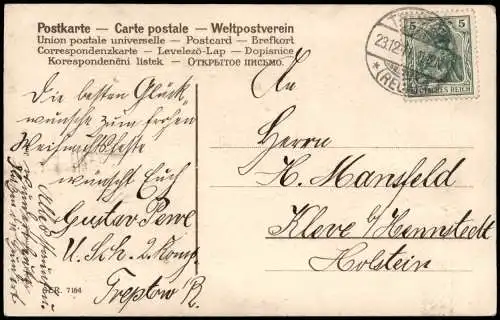 Postkarte — Carte postale — Weltpostverein
Union postale universelle — Postcard — Brefkort
Correspondenzkarte — Levelező-Lap — Dopisnice
Korespondenční lístek — ОТКРЫТОЕ ПИСЬМО.
Die besten Glück-
wünsche zum frohen
Weihnachtsfeste
wünscht Euch
Gustav
U. Sch. 2. Komp.
Treptow R.
S.E.R. 7164
An
Herrn
H. Mansfeld
Kleve b/ Hennstedt
Holstein
5
DEUTSCHES REICH
23.12.